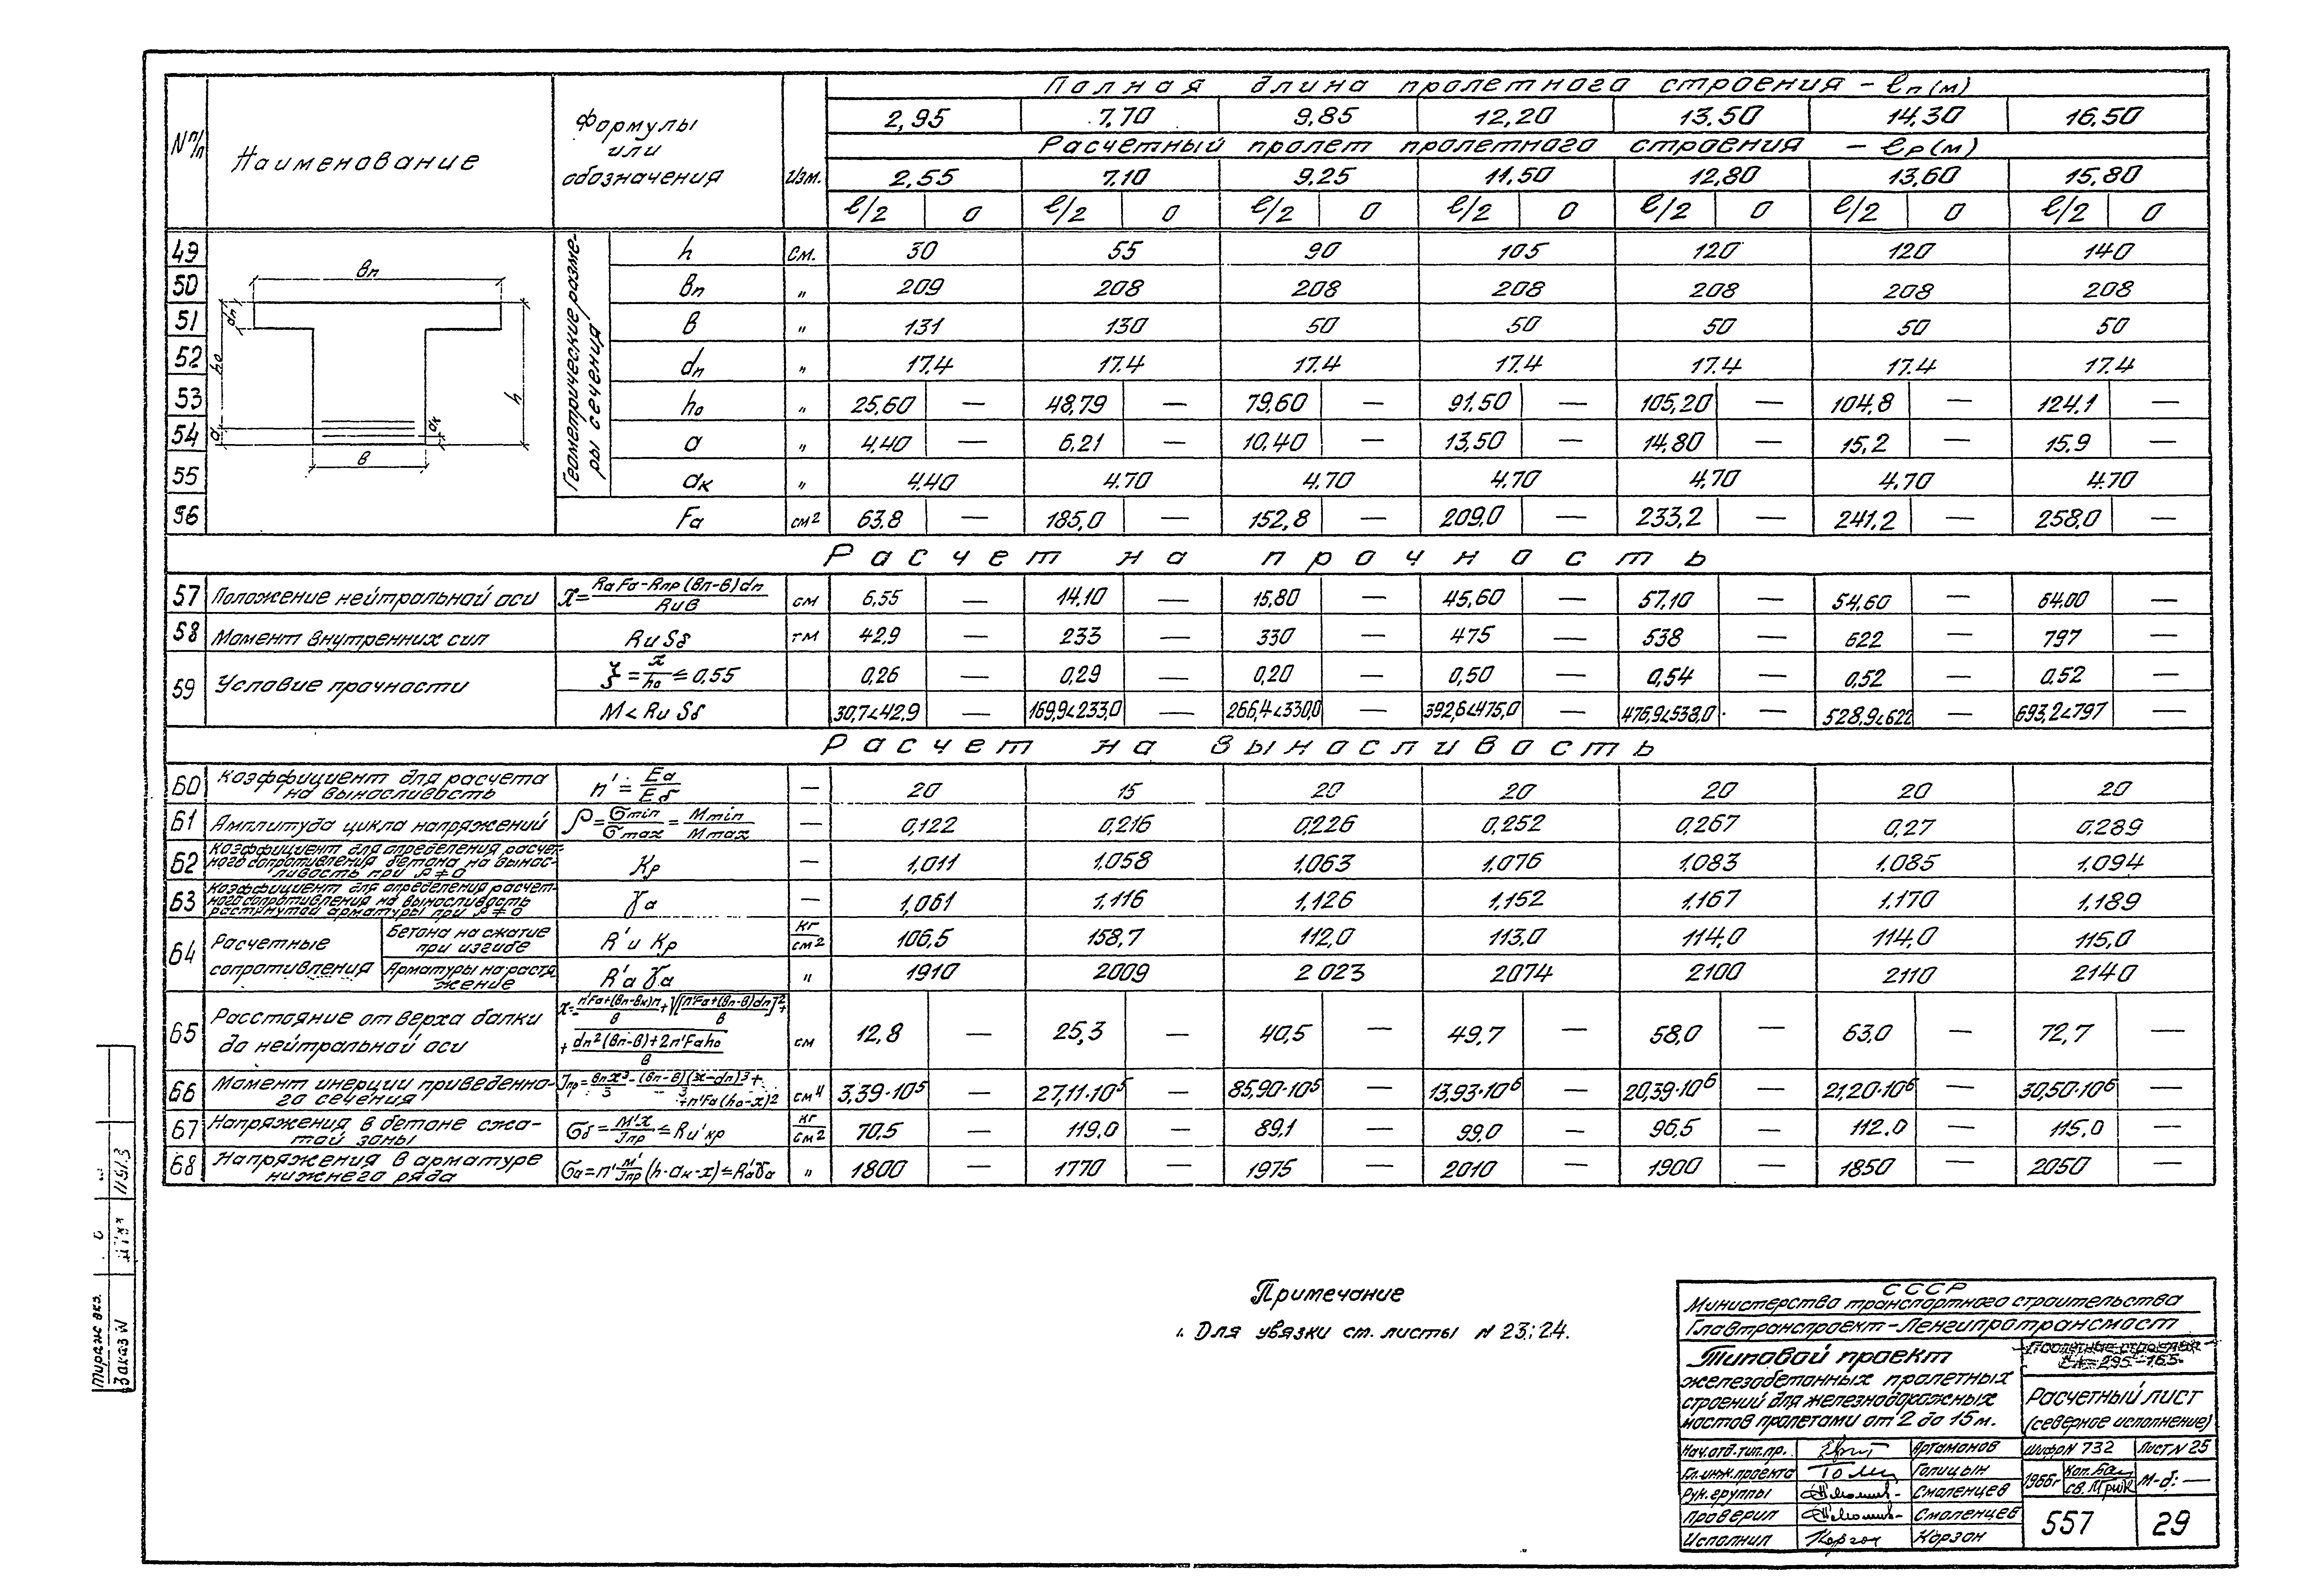 N п/п
Наименование
Формулы или обозначения
Изм.
Полная длина пролетного строения – ℓп (м)
2,95 7,70 9,85 12,20 13,50 14,30 16,50
Расчетный пролет пролетного строения – ℓр (м)
2,55 7,10 9,25 11,50 12,80 13,60 15,80
ℓ/2 0 ℓ/2 0 ℓ/2 0 ℓ/2 0 ℓ/2 0 ℓ/2 0 ℓ/2 0
Геометрические размеры сечения
вп
dп
h₀
h
а
ак
в
49 h см. 30 55 90 105 120 120 140
50 вп " 209 208 208 208 208 208 208
51 в " 131 130 50 50 50 50 50
52 dп " 17.4 17.4 17.4 17.4 17.4 17.4 17.4
53 h₀ " 25,60 — 48,79 — 79,60 — 91,50 — 105,20 — 104,8 — 124,1 —
54 а " 4,40 — 6,21 — 10,40 — 13,50 — 14,80 — 15,2 — 15,9 —
55 ак " 4.40 4.70 4.70 4.70 4.70 4.70 4.70
56 Fа см² 63,8 — 185,0 — 152,8 — 209,0 — 233,2 — 241,2 — 258,0 —
Расчет на прочность
57 Положение нейтральной оси x = RаFа-Rпр(вп-в)dп / Rив см 6,55 — 14,10 — 15,80 — 45,60 — 57,10 — 54,60 — 64,00 —
58 Момент внутренних сил Rи Sб тм 42,9 — 233 — 330 — 475 — 538 — 622 — 797 —
59 Условие прочности ξ = x/h₀ ≤ 0,55 0,26 — 0,29 — 0,20 — 0,50 — 0,54 — 0,52 — 0,52 —
M < Rи Sб 30,7<42,9 — 169,9<233,0 — 266,4<330,0 — 392,6<475,0 — 476,9<538,0 — 528,9<622 — 693,2<797 —
Расчет на выносливость
60 Коэффициент для расчета на выносливость n' = Eа/Eб — 20 15 20 20 20 20 20
61 Амплитуда цикла напряжений ρ = σmin/σmax = Mmin/Mmax — 0,122 0,216 0,226 0,252 0,267 0,27 0,289
62 Коэффициент для определения расчетного сопротивления бетона на выносливость при ρ ≠ 0 Kр — 1,011 1,058 1,063 1,076 1,083 1,085 1,094
63 Коэффициент для определения расчетного сопротивления на выносливость растянутой арматуры при ρ ≠ 0 γа — 1,061 1,116 1,126 1,152 1,167 1,170 1,189
64 Расчетные сопротивления Бетона на сжатие при изгибе R'и Kр кг/см² 106,5 158,7 112,0 113,0 114,0 114,0 115,0
Арматуры на растяжение R'а γа " 1910 2009 2023 2074 2100 2110 2140
65 Расстояние от верха балки до нейтральной оси см 12,8 — 25,3 — 40,5 — 49,7 — 58,0 — 63,0 — 72,7 —
66 Момент инерции приведенного сечения Jпр = вп x³/3 - (вп-в)(x-dп)³/3 + n'Fа(h₀-x)² см⁴ 3,39·10⁵ — 27,11·10⁵ — 85,90·10⁵ — 13,93·10⁶ — 20,39·10⁶ — 21,20·10⁶ — 30,50·10⁶ —
67 Напряжения в бетоне сжатой зоны σб = M'x/Jпр ≤ Rи'кр кг/см² 70,5 — 119,0 — 89,1 — 99,0 — 96,5 — 112,0 — 115,0 —
68 Напряжения в арматуре нижнего ряда σа = n' M'/Jпр (h-ак-x) ≤ R'аγа " 1800 — 1770 — 1975 — 2010 — 1900 — 1850 — 2050 —
Примечание
1. Для увязки см. листы N 23; 24.
СССР
Министерство транспортного строительства
Главтранспроект-Ленгипротрансмост
Типовой проект
железобетонных пролетных
строений для железнодорожных
мостов пролетами от 2 до 15 м.
Пролетные строения
Расчетный лист
(северное исполнение)
Нач.отд.тип.пр. Артамонов Шифр N 732 Лист N 25
Гл.инж.проекта Голицын 1966г М-б: —
Рук.группы Смоленцев
Проверил Смоленцев 557 29
Исполнил Корзон
Тираж экз.
Заказ N